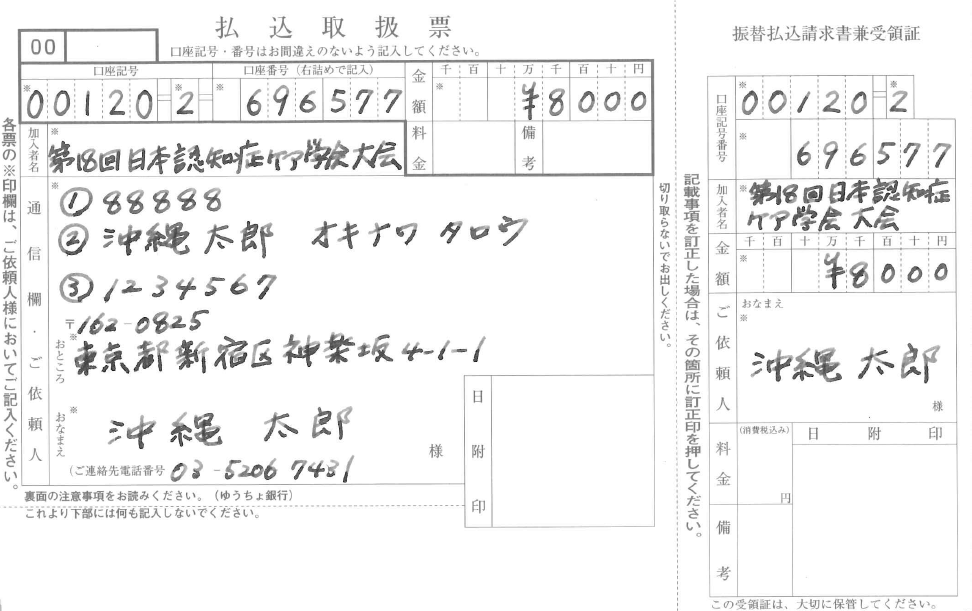 払込取扱票
00
口座記号・番号はお間違えのないよう記入してください。
口座記号 口座番号(右詰めで記入) 金額 千 百 十 万 千 百 十 円
※00120-2- ※696577 ※¥8000
加入者名 ※第18回日本認知症ケア学会大会 料金 備考
通信欄・ご依頼人
※①88888
②沖縄太郎 オキナワ タロウ
③1234567
〒162-0825
おところ ※東京都新宿区神楽坂4-1-1
おなまえ ※沖縄 太郎 様
(ご連絡先電話番号 03-5206 7431
日附印
裏面の注意事項をお読みください。(ゆうちょ銀行)
これより下部には何も記入しないでください。
各票の※印欄は、ご依頼人様においてご記入ください。
切り取らないでお出しください。
記載事項を訂正した場合は、その箇所に訂正印を押してください。
振替払込請求書兼受領証
口座記号番号 ※00120-※2
※696577
加入者名 ※第18回日本認知症
ケア学会大会
金額 千 百 十 万 千 百 十 円
※¥8000
ご依頼人 おなまえ
※
沖縄 太郎
様
料金 (消費税込み) 円 日 附 印
備考
この受領証は、大切に保管してください。